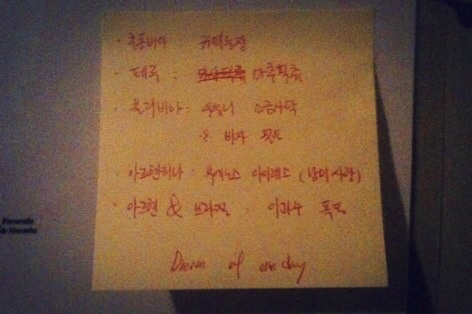 · 콜롬비아 : 커피농장
· 페루 : 마추픽츄
· 볼리비아 : 우유니 소금사막
※ 비자 필요
· 아르헨티나 : 부에노스 아이레스 (남미사랑)
· 아르헨 & 브라질 : 이과수 폭포
Dream of one day
Fernando
de Noronha